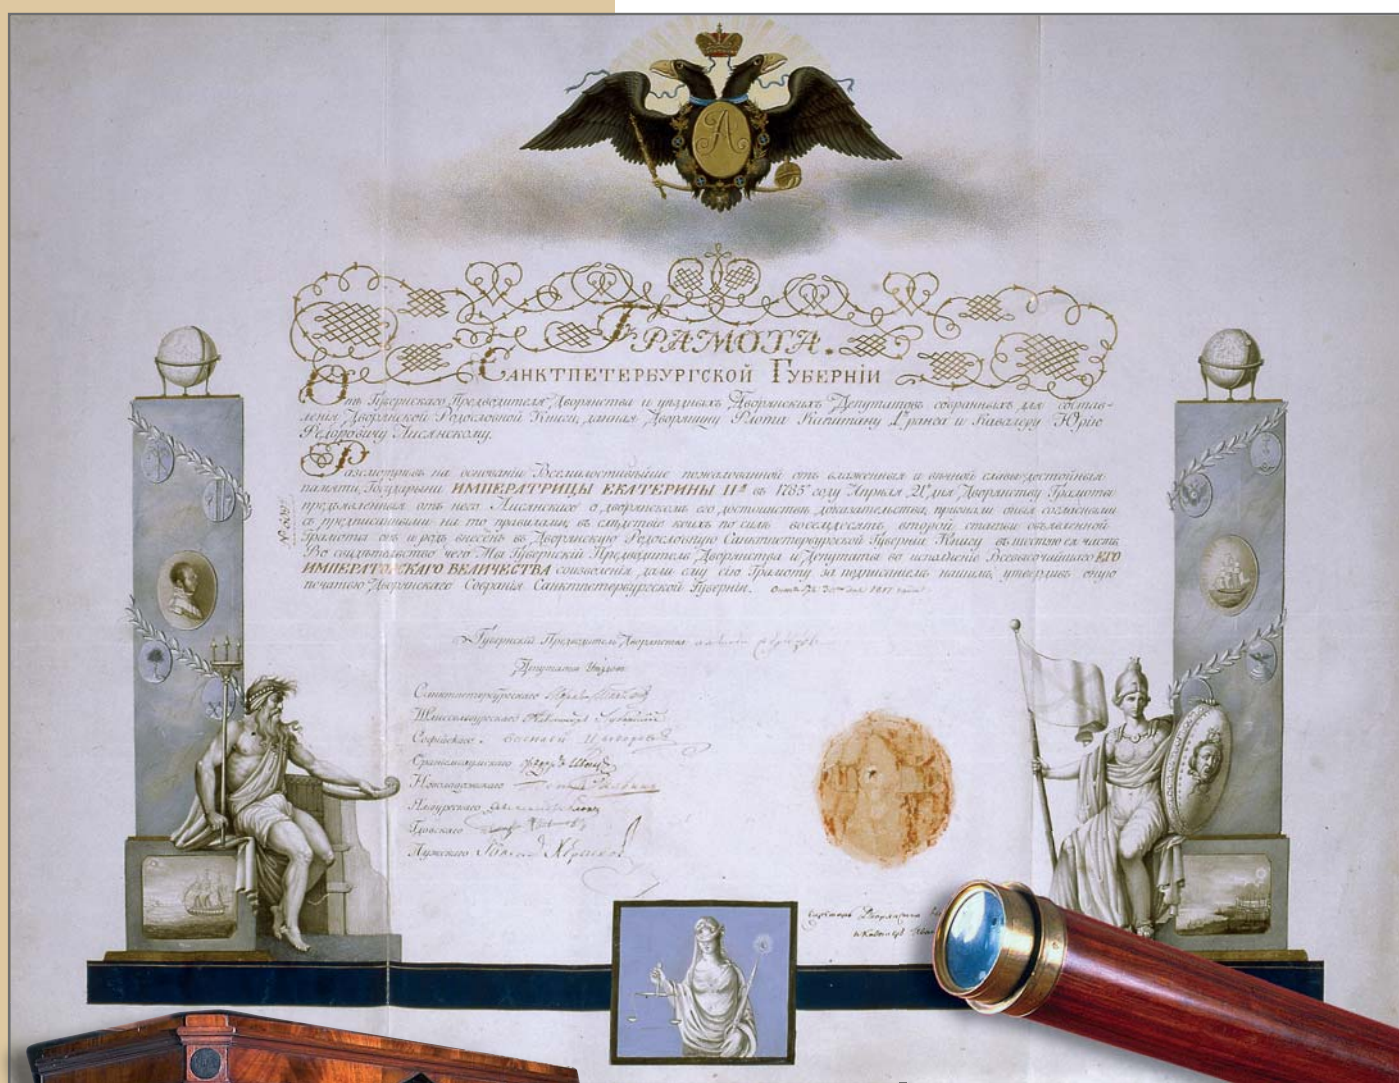 А
ГРАМОТА.
САНКТПЕТЕРБУРГСКОЙ ГУБЕРНІИ
Отъ Губернскаго Предводителя Дворянства и уѣздныхъ Дворянскихъ Депутатовъ собранныхъ для состав-
ленія Дворянской Родословной Книги, данная Дворянину Флота Капитану 1 ранга и Кавалеру Юрію
Федоровичу Лисянскому.
Разсмотрѣвъ на основаніи Всемилостивѣйше пожалованной отъ блаженныя и вѣчной славы достойныя
памяти, Государыни ИМПЕРАТРИЦЫ ЕКАТЕРИНЫ IIй въ 1785 году Апрѣля 21 дня Дворянству Грамоты
предъявленныя отъ него Лисянскаго о дворянскомъ его достоинствѣ доказательства, признали оныя согласными
съ предписанными на то правилами, въ слѣдствіе коихъ по силѣ восемдесятъ второй статьи объявленной
Грамоты онъ и родъ внесенъ въ Дворянскую Родословную Санктпетербургской Губерніи Книгу въ шестую ея часть.
Во свидѣтельство чего Мы Губернскій Предводитель Дворянства и Депутаты во исполненіе Всевысочайшаго ЕГО
ИМПЕРАТОРСКАГО ВЕЛИЧЕСТВА соизволенія дали ему сію Грамоту за подписаніемъ нашимъ, утвердивъ оную
печатью Дворянскаго Собранія Санктпетербургской Губерніи. 1817 года
Губернскій Предводитель Дворянства
Депутаты Уѣздовъ
Санктпетербургскаго
Шлиссельбургскаго
Софійскаго
Ораніенбаумскаго
Новоладожскаго
Ямбургскаго
Гдовскаго
Лужскаго